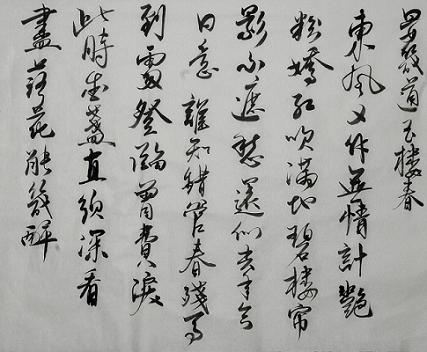 晏幾道玉樓春
東風又作無情計艷
粉嬌紅吹滿地碧樓簾
影不遮愁還似去年今
日意誰知錯管春殘事
到處登臨曾費淚
此時金盞直須深看
盡落花能幾醉